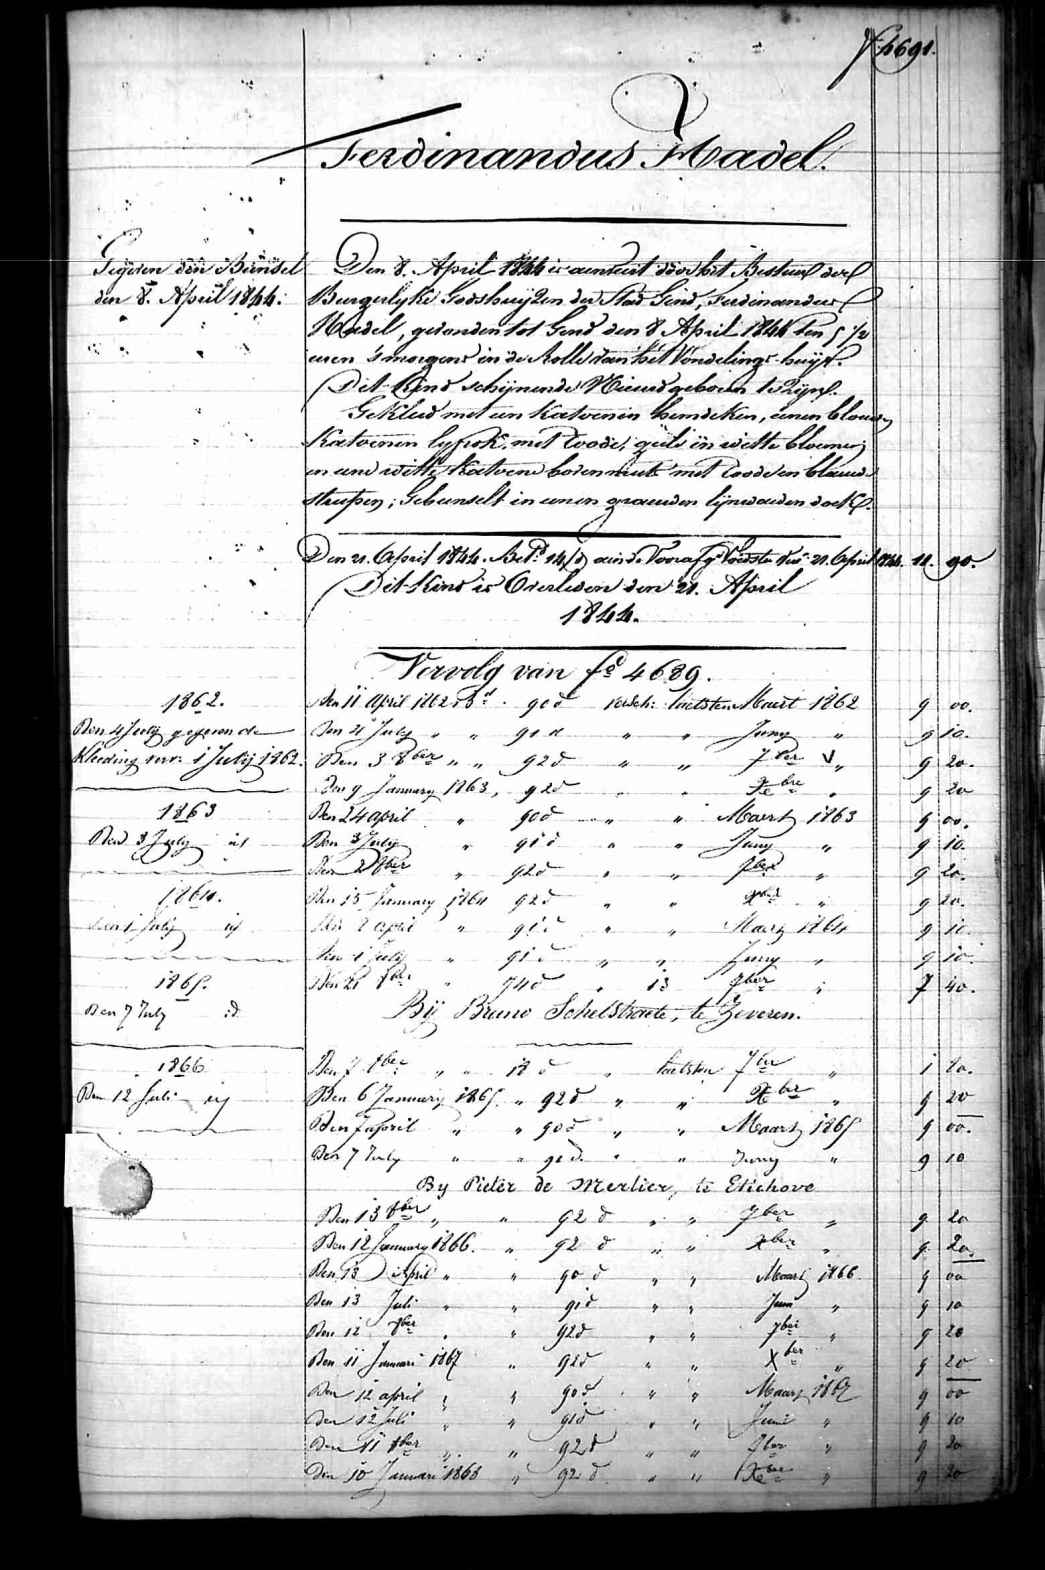 fº 4691.
Ferdinandus Hadel.
Gegeven den Bunsel
den 8. April 1844.
Den 8. April 1844 is aenveirt door het Bestuer der
Burgerlyke Godshuyzen der Stad Gend, Ferdinandus
Hadel, gevonden tot Gend den 8 April 1844 ten 5 1/2
uren s'morgens in de Rolle van het Vondelings-huys.
Dit Kind schynende Nieuwgeboren te Zyn.
Gekleed met een Katoenen hemdeken, eenen blouw
Katoenen lyfrok, met roode, geele en witte bloemen,
en eene witte Katoene bovenmuts met roode en blauwe
streepen; Gebunselt in eenen grauwen lynwaeden doek.
Den 21. April 1844. Bet.d 14/d aen de Voorafg.e Voedster tot 21. April 1844. 11. 90.
Dit Kind is Overleden den 21. April
1844.
Vervolg van fº 4689.
1862.
Den 4 July gegeven de
Kleeding verv: 1 July 1862.
1863
Den 3 July id
1864.
Den 1 July id
1865.
Den 7 July id
1866
Den 12 Juli id
Den 11 April 1862 Bd 90 d versch: laetsten Maert 1862 9 00.
Den 4 July " " 91 d " " Juny " 9 10.
Den 3 8ber " " 92 d " " 7ber " 9 20.
Den 9 January 1863, 92 d " " Xbre " 9 20
Den 24 april " 90 d " " Maert 1863 9 00.
Den 3 July " 91 d " " Juny " 9 10.
Den 2 8ber " 92 d " " 7ber " 9 20.
Den 15 January 1864 92 d " " Xber " 9 20.
Den 8 april " 91 d " " Maert 1864 9 10.
Den 1 July " 91 d " " Juny " 9 10.
Den 21 8ber " 74 d " 13 7ber " 7 40.
By Bruno Schelstraete, te Zeveren.
Den 7 8ber " " 18 d " laetsten 7ber " 1 80.
Den 6 January 1865. " 92 d " " Xber " 9 20
Den 7 april " " 90 d " " Maart 1865 9 00.
Den 7 July " " 91 d. " " Juny " 9 10
By Pieter de Merlier, te Etichove
Den 13 8ber " " 92 d " " 7ber " 9 20
Den 12 January 1866. " 92 d " " Xber " 9 20.
Den 13 April " " 90 d " " Maart 1866. 9 00
Den 13 Juli " " 91 d " " Juni " 9 10
Den 12 8ber " " 92 d " " 7ber " 9 20
Den 11 Januari 1867 " 92 d " " Xber " 9 20
Den 12 april " " 90 d " " Maart 1867 9 00
Den 12 Juli " " 91 d " " Juni " 9 10
Den 11 8ber " " 92 d " " 7ber " 9 20
Den 10 Januari 1868 " 92 d " " Xber " 9 20